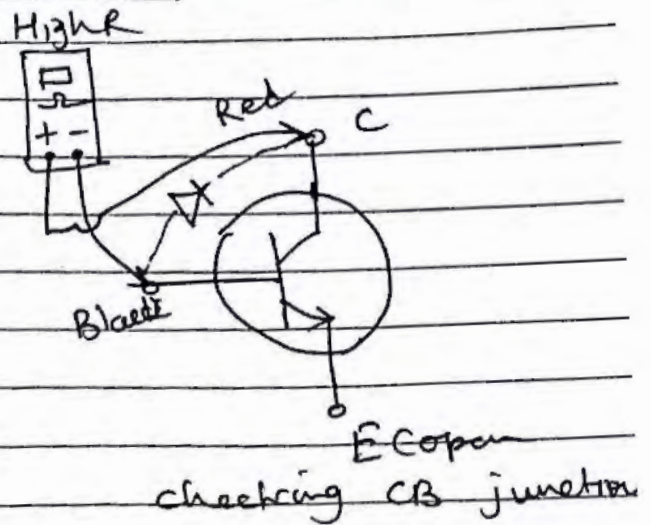 High R
+ -
Red
C
Black
E Copen
checking CB junction